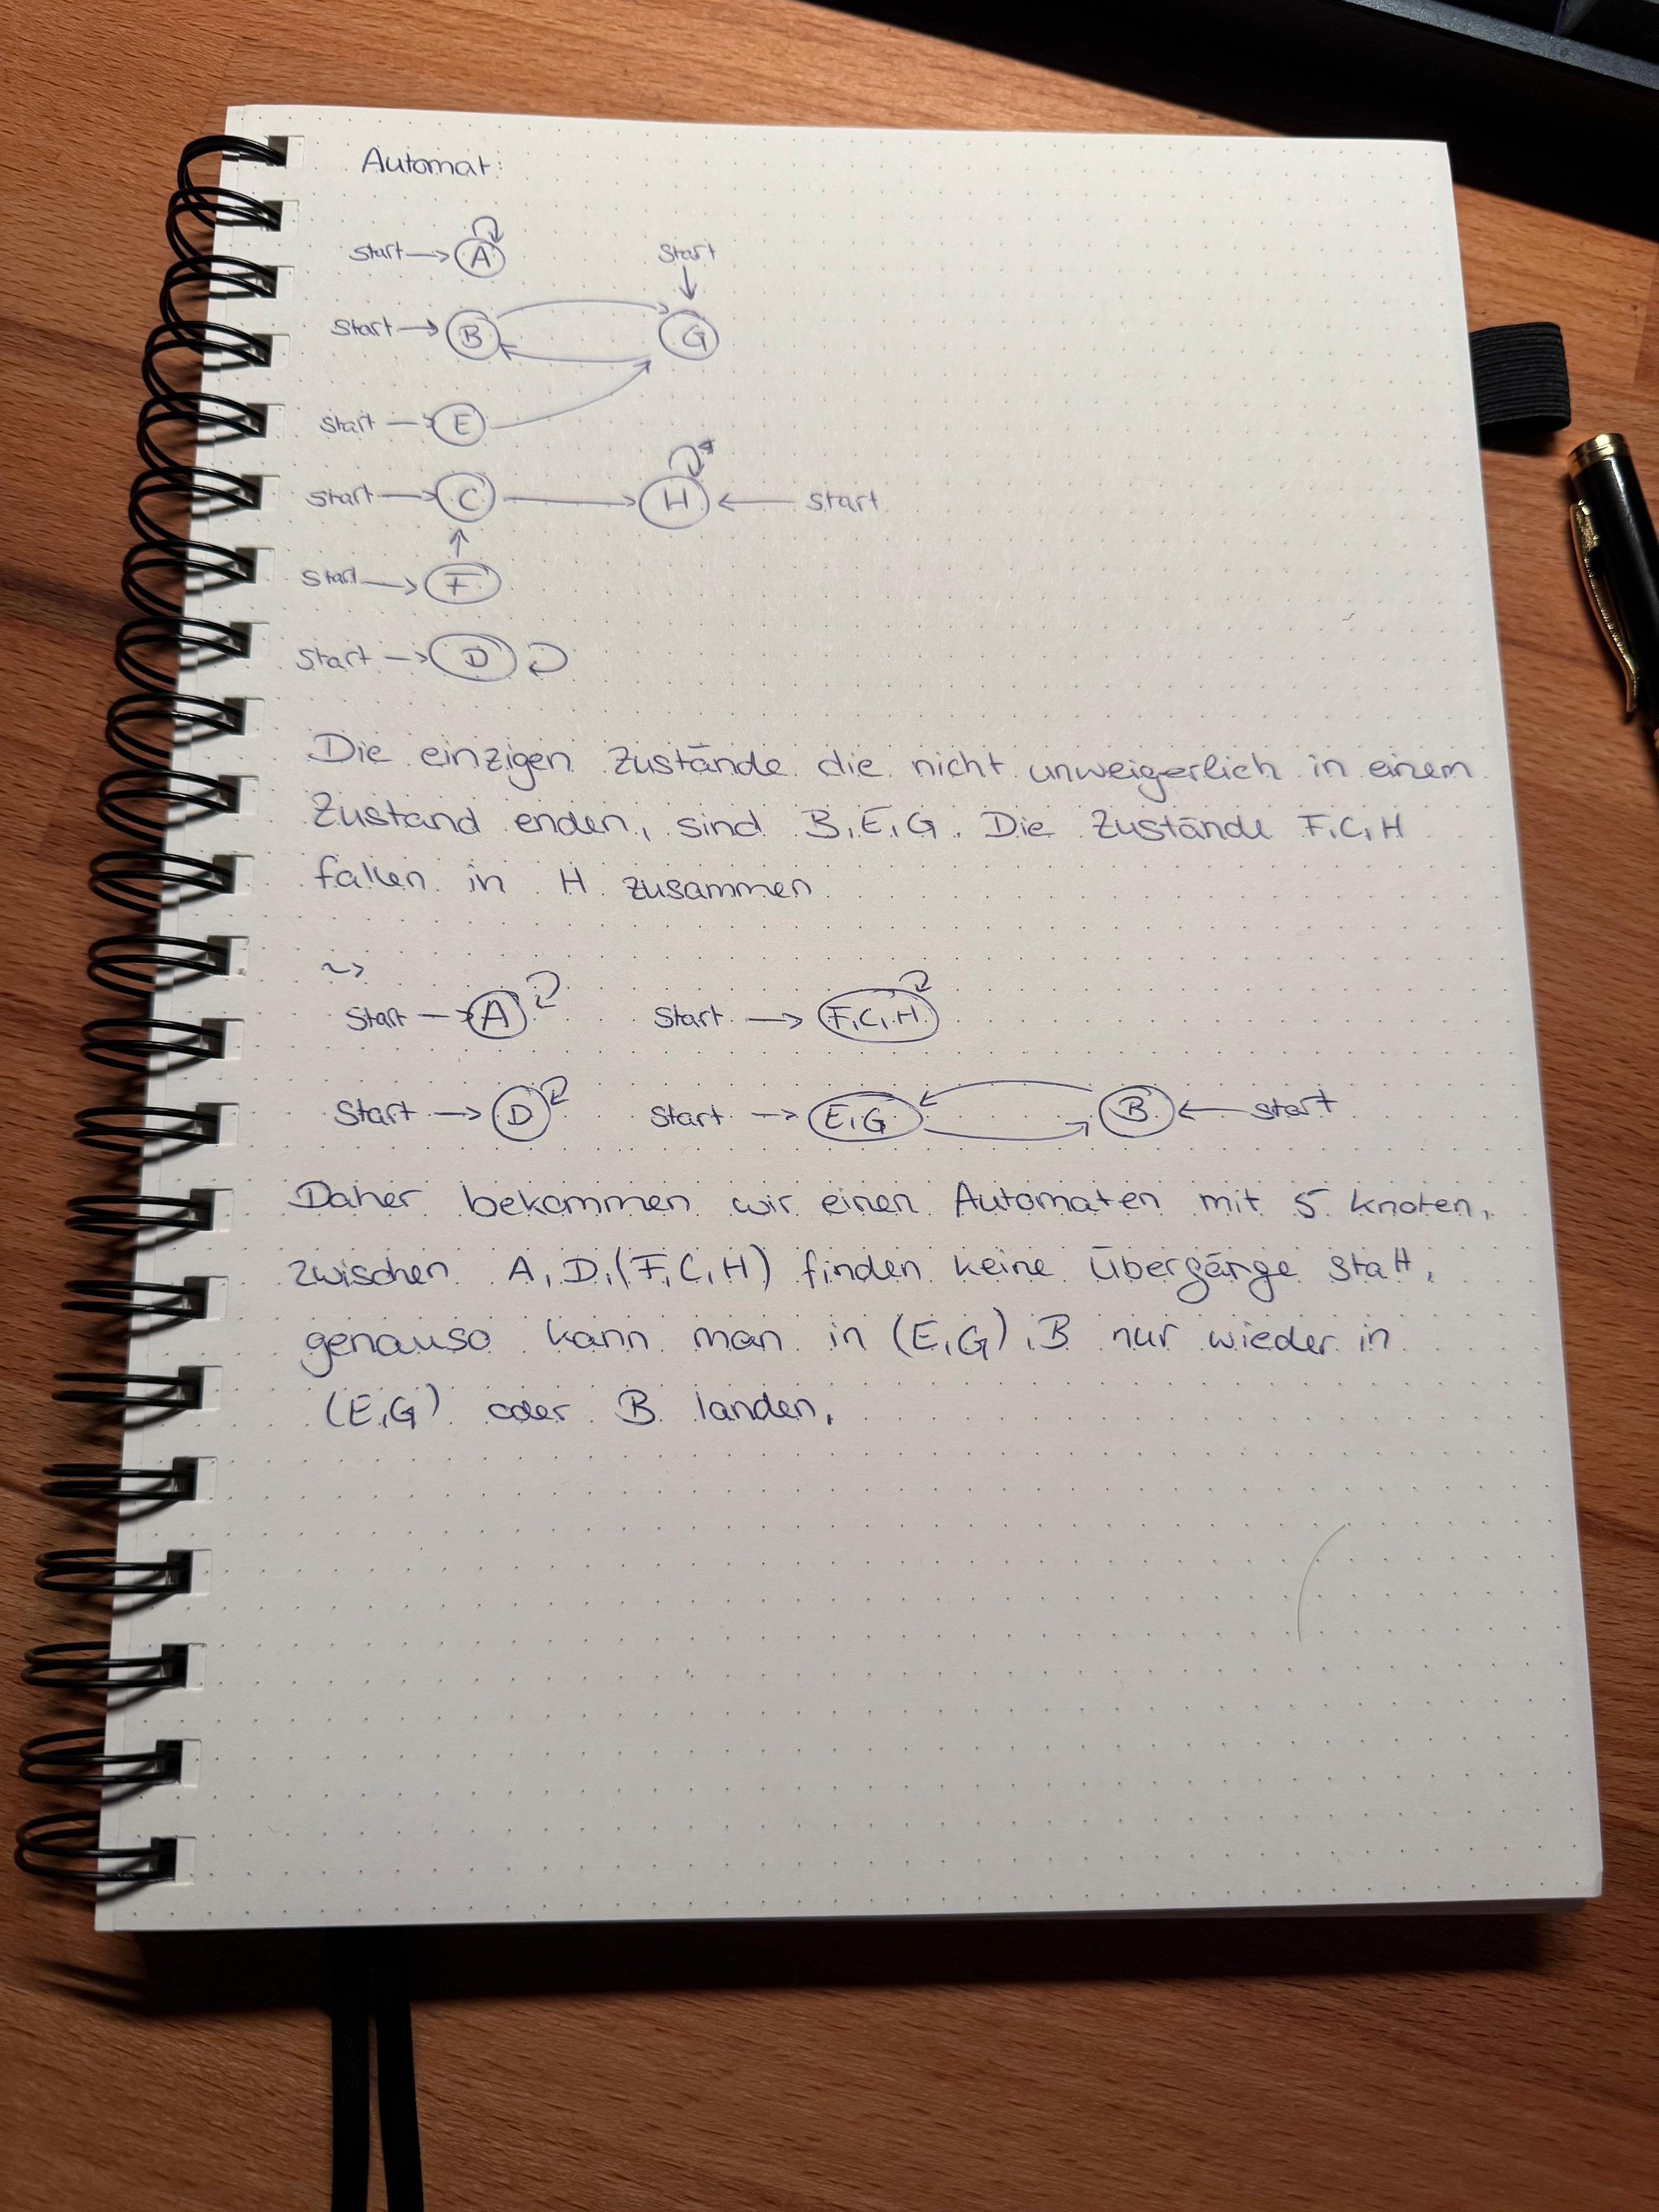 Automat:
Start A
Start
Start B G
Start E
Start C H Start
Start F
Start D
Die einzigen Zustände die nicht unweigerlich in einem
Zustand enden, sind B,E,G. Die Zustände F,C,H
fallen in H zusammen
~>
Start A Start F,C,H
Start D Start E,G B Start
Daher bekommen wir einen Automaten mit 5 Knoten,
zwischen A,D,(F,C,H) finden keine Übergänge statt,
genauso kann man in (E,G),B nur wieder in
(E,G) oder B landen,